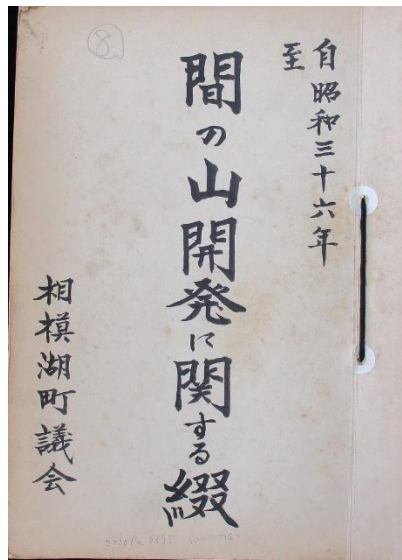 自昭和三十六年
至
間の山開発に関する綴
相模湖町議会
8